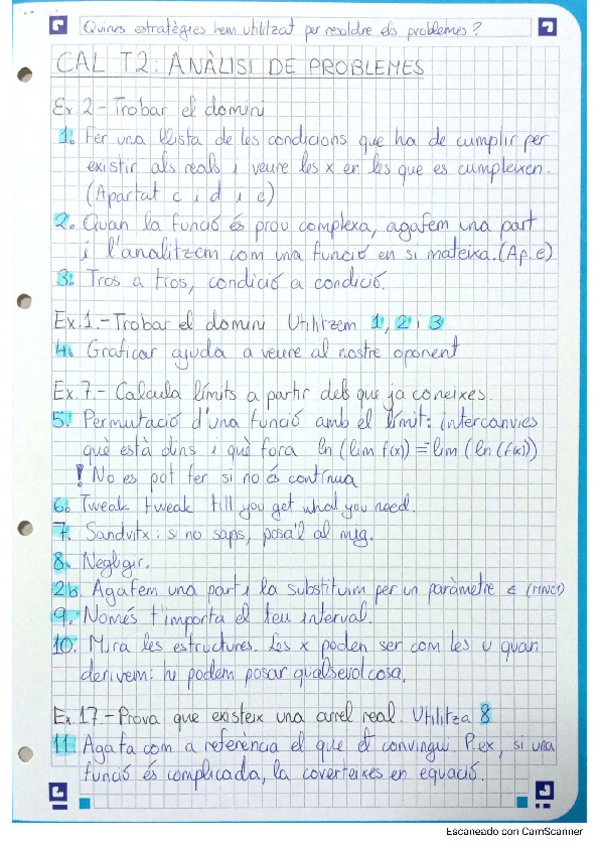 Quines estratègies hem utilitzat per resoldre els problemes?
CAL T2: ANÀLISI DE PROBLEMES
Ex 2 - Trobar el domini
1. Fer una llista de les condicions que ha de cumplir per
existir als reals i veure les x en les que es cumpleixen.
(Apartat c i d i e)
2. Quan la funció és prou complexa, agafem una part
i l'analitzem com una funció en si mateixa. (Ap. e)
3. Tros a tros, condició a condició.
Ex. 1. - Trobar el domini Utilitzem 1, 2 i 3
4. Graficar ajuda a veure al nostre oponent
Ex. 7. - Calcula límits a partir dels que ja coneixes.
5. Permutació d'una funció amb el límit: intercanvies
què està dins i què fora ln (lim f(x)) = lim (ln (f(x)))
! No es pot fer si no és contínua
6. Tweak tweak till you get what you need.
7. Sandvitx: si no saps, posa'l al mig.
8. Negligir.
2b. Agafem una part i la substituim per un paràmetre
9. Només t'importa el teu interval.
10. Mira les estructures. Les x poden ser com les u quan
derivem: hi podem posar qualsevol cosa.
Ex. 17. - Prova que existeix una arrel real. Utilitza 8
11. Agafa com a referència el que et convingui. P.ex, si una
funció és complicada, la coverteixes en equació.
Escaneado con CamScanner